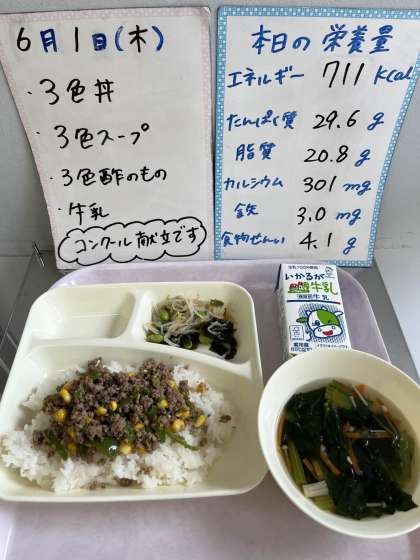 6月1日(木)
・3色丼
・3色スープ
・3色酢のもの
・牛乳
コンクール献立です
本日の栄養量
エネルギー 711 Kcal
たんぱく質 29.6 g
脂質 20.8 g
カルシウム 301 mg
鉄 3.0 mg
食物せんい 4.1 g
いかるが
牛乳